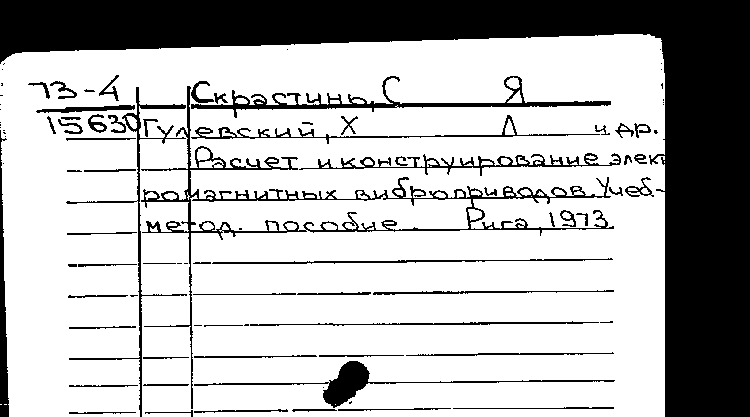 73-4 Скрастинь, С Я
15630 Гулевский, Х Л и др.
Расчет и конструирование элект
ромагнитных виброприводов. Учеб-
метод. пособие. Рига, 1973